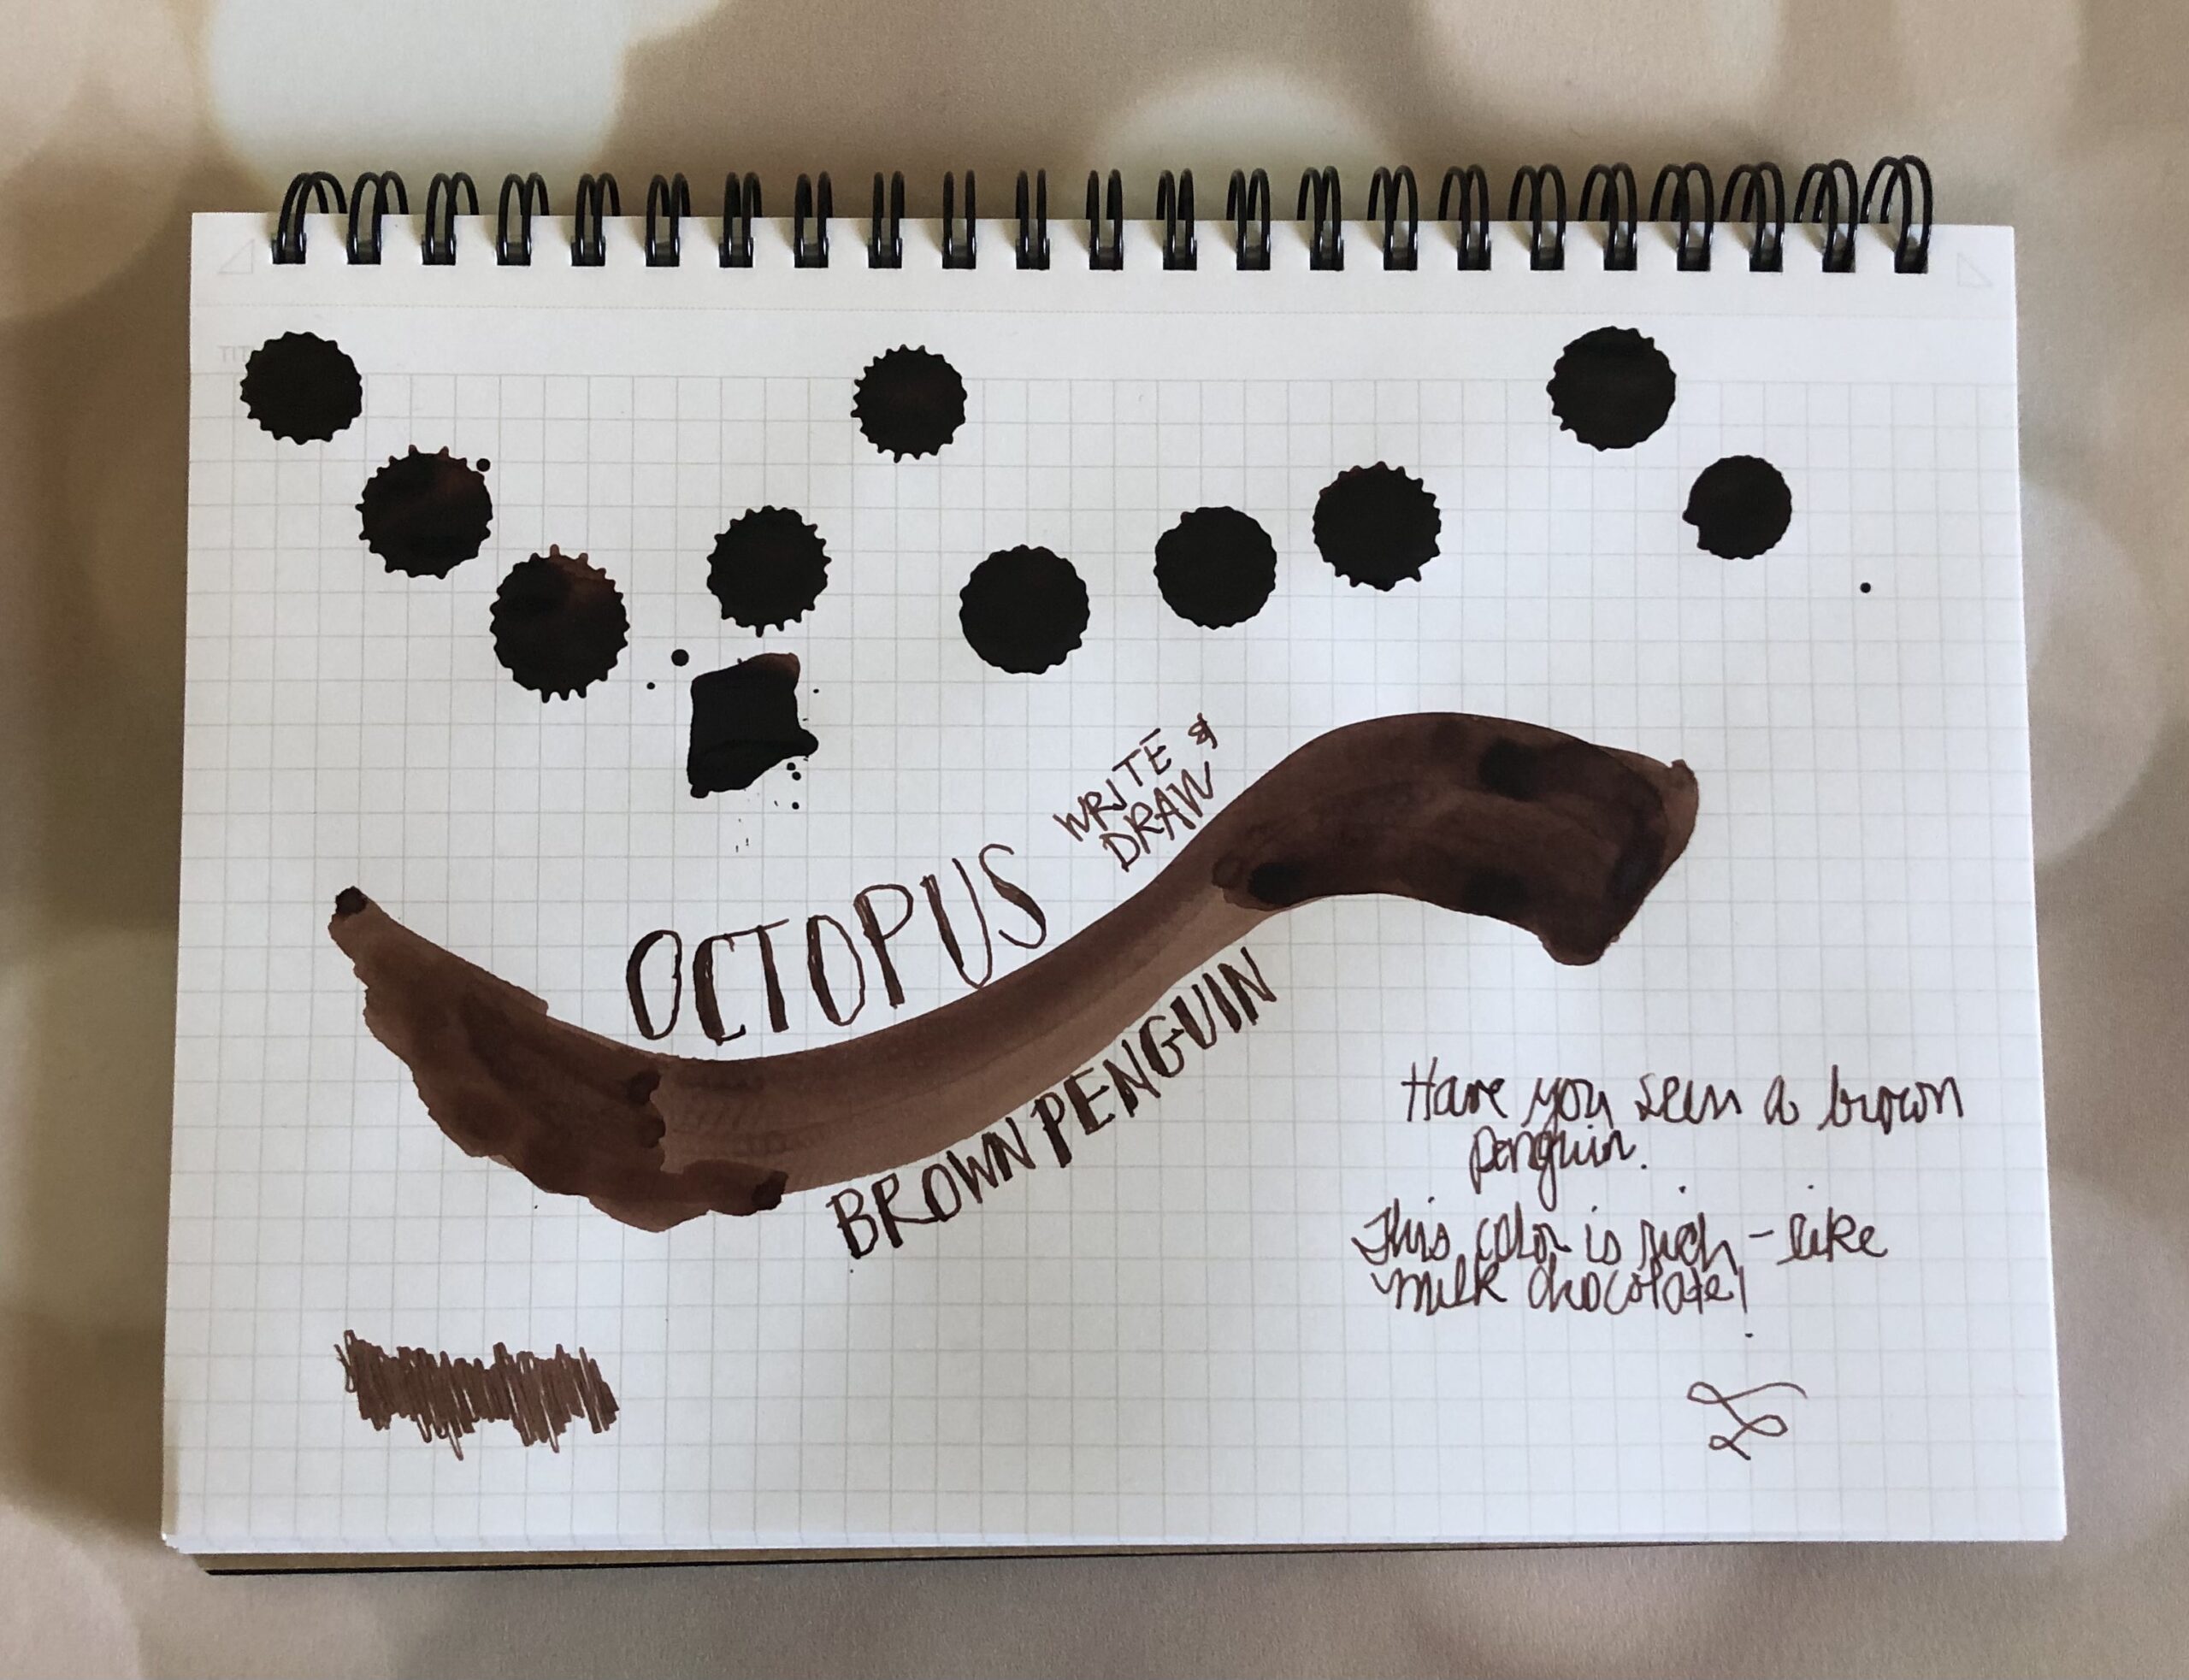 TIT
WRITE &
DRAW
OCTOPUS
BROWN PENGUIN
Have you seen a brown
penguin.
This color is rich – like
milk chocolate!